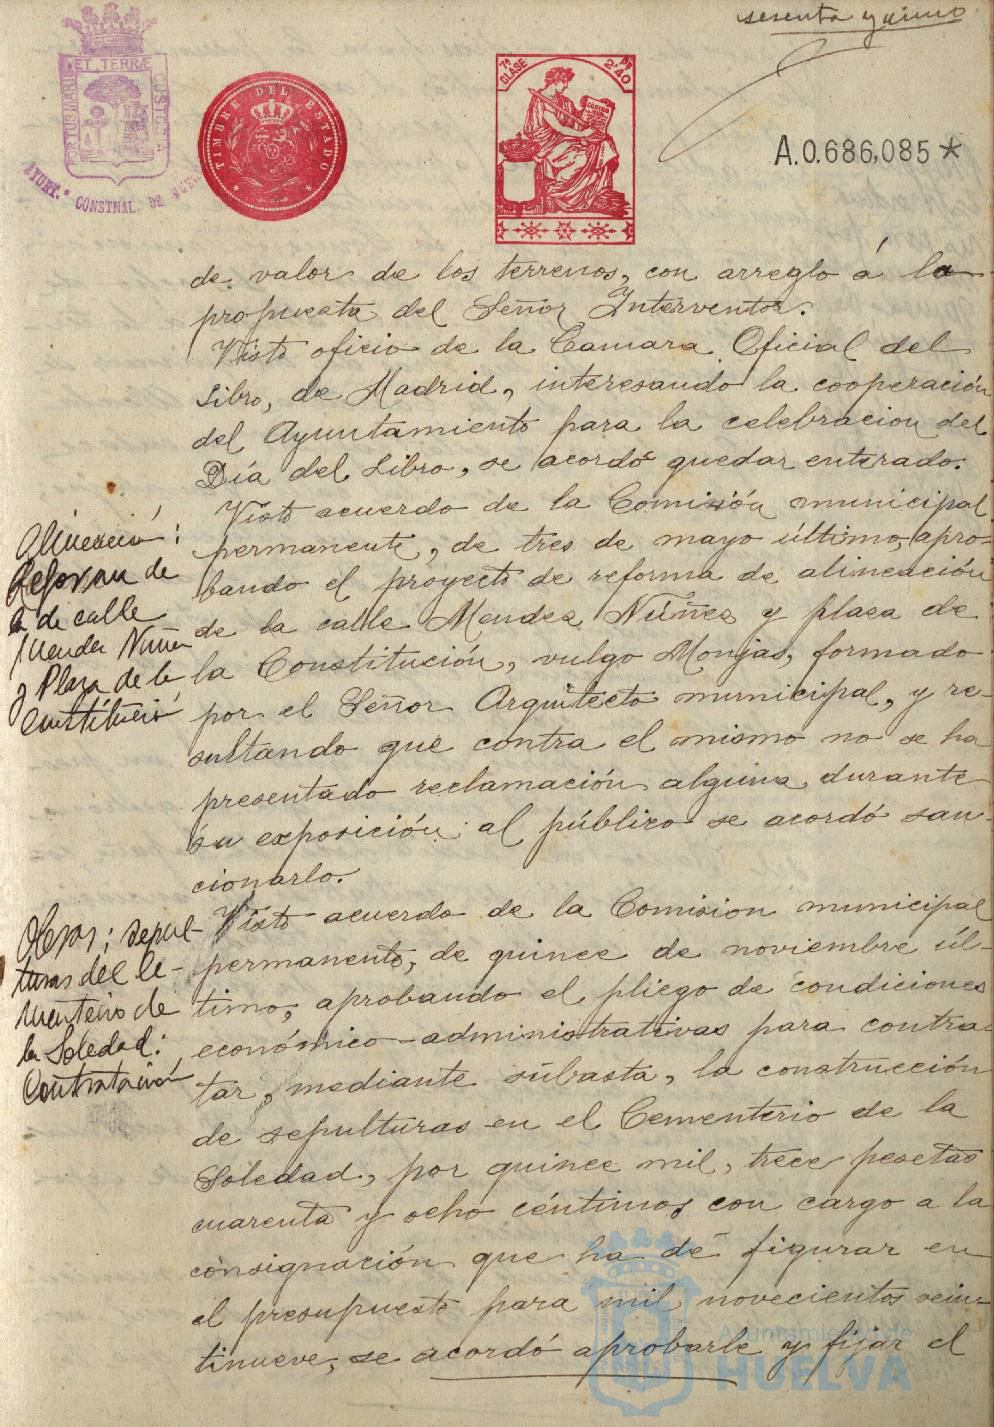 sesenta y cinco
PORTUS MARIS ET TERRÆ CUSTODIA
AYUNT. CONSTNAL. DE
TIMBRE DEL ESTADO
7ª CLASE
2'40
A.0.686,085*
de valor de los terrenos, con arreglo á la
propuesta del Señor Interventor.
Visto oficio de la Camara Oficial del
Libro, de Madrid, interesando la cooperación
del Ayuntamiento para la celebracion del
Día del Libro, se acordó quedar enterado.
Visto acuerdo de la Comisión municipal
permanente, de tres de mayo último, apro-
bando el proyecto de reforma de alineación
de la calle Mendez Núñez y plaza de
la Constitución, vulgo Monjas, formado
por el Señor Arquitecto municipal, y re-
sultando que contra el mismo no se ha
presentado reclamación alguna durante
su exposición al público se acordó san-
cionarlo.
Alineació:
Reforma de
de calle
Mendez Nuñez
y Plaza de la
Constitució
Visto acuerdo de la Comision municipal
permanente, de quince de noviembre úl-
timo, aprobando el pliego de condiciones
económico-administrativas para contra-
tar, mediante subasta, la construcción
de sepulturas en el Cementerio de la
Soledad, por quince mil, trece pesetas
cuarenta y ocho céntimos con cargo a la
consignación que ha de figurar en
el presupuesto para mil novecientos vein-
tinueve, se acordó aprobarle y fijar el
Obras; sepul-
turas del Ce-
menterio de
la Soledad:
Contratación
Ayuntamiento de
HUELVA